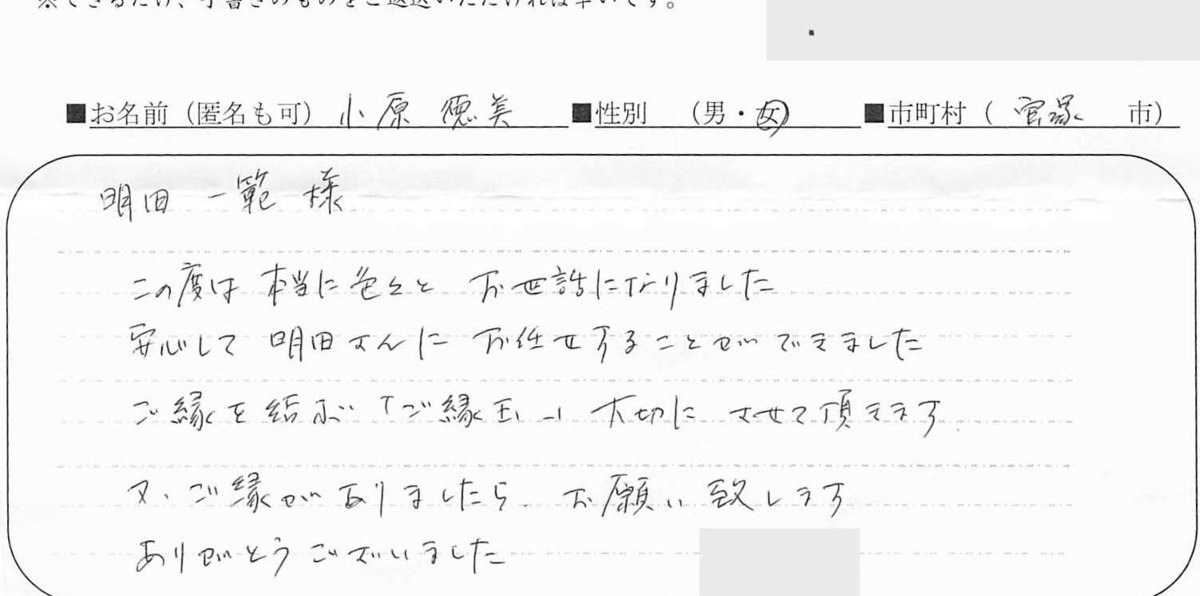 ※できるだけ、手書きのものをご返送いただければ幸いです。
■お名前（匿名も可）小原 徳美 ■性別 （男・女） ■市町村（ 宝塚 市）
明田 一範 様
この度は 本当に色々と お世話になりました
安心して 明田さんに お任せすることができました
ご縁を結ぶ「ご縁玉」 大切に させて頂きます
又、ご縁がありましたら お願い致します
ありがとうございました